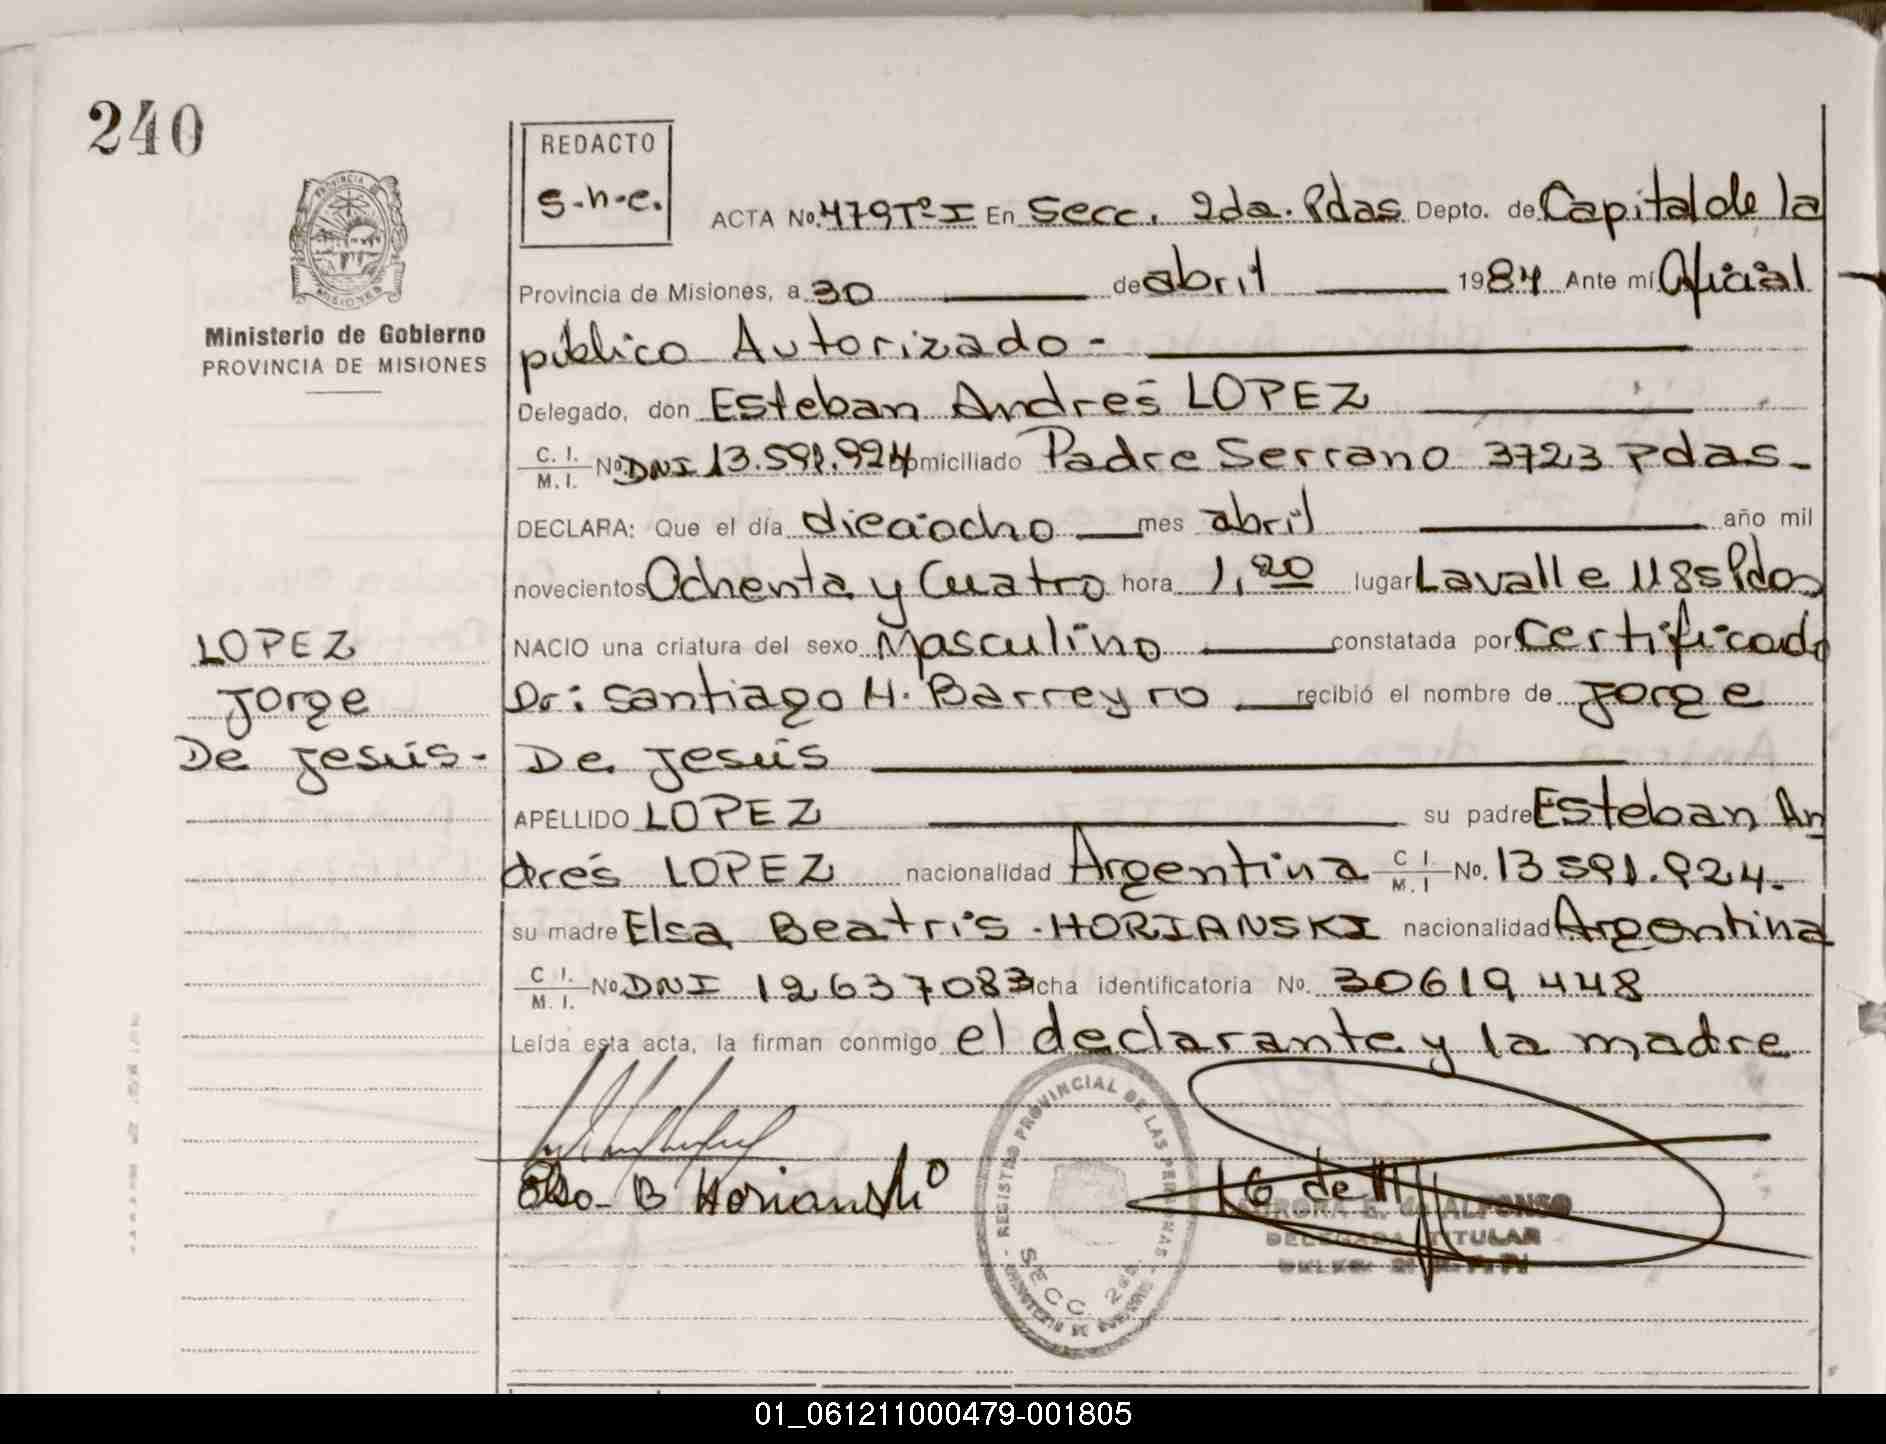 240
REDACTO
s.n.e.
PROVINCIA DE
MISIONES
Ministerio de Gobierno
PROVINCIA DE MISIONES
ACTA No. 479 Tº I En Secc. 2da. Pdas Depto. de Capital de la
Provincia de Misiones, a 30 de abril 1984 Ante mí Oficial
público Autorizado -
Delegado, don Esteban Andrés LOPEZ
C. I. / M. I. No. DNI 13.591.924 domiciliado Padre Serrano 3723 Pdas.-
DECLARA: Que el día dieciocho mes abril año mil
novecientos Ochenta y Cuatro hora 1,20 lugar Lavalle 1185 Pdas
NACIO una criatura del sexo Masculino constatada por Certificado
LOPEZ
Jorge
De Jesús.-
Dr: Santiago H. Barreyro recibió el nombre de Jorge
De Jesús
APELLIDO LOPEZ su padre Esteban An
drés LOPEZ nacionalidad Argentina C I. / M. I No. 13 591.924.
su madre Elsa Beatris HORIANSKI nacionalidad Argentina
C I. / M. I. No. DNI 12637083 ficha identificatoria No. 30619448
Leída esta acta, la firman conmigo el declarante y la madre
Elsa B Horianski
REGISTRO PROVINCIAL DE LAS PERSONAS
SECC. 2da.
AURORA E. G. de ALFONSO
DELEGADA TITULAR
01_061211000479-001805